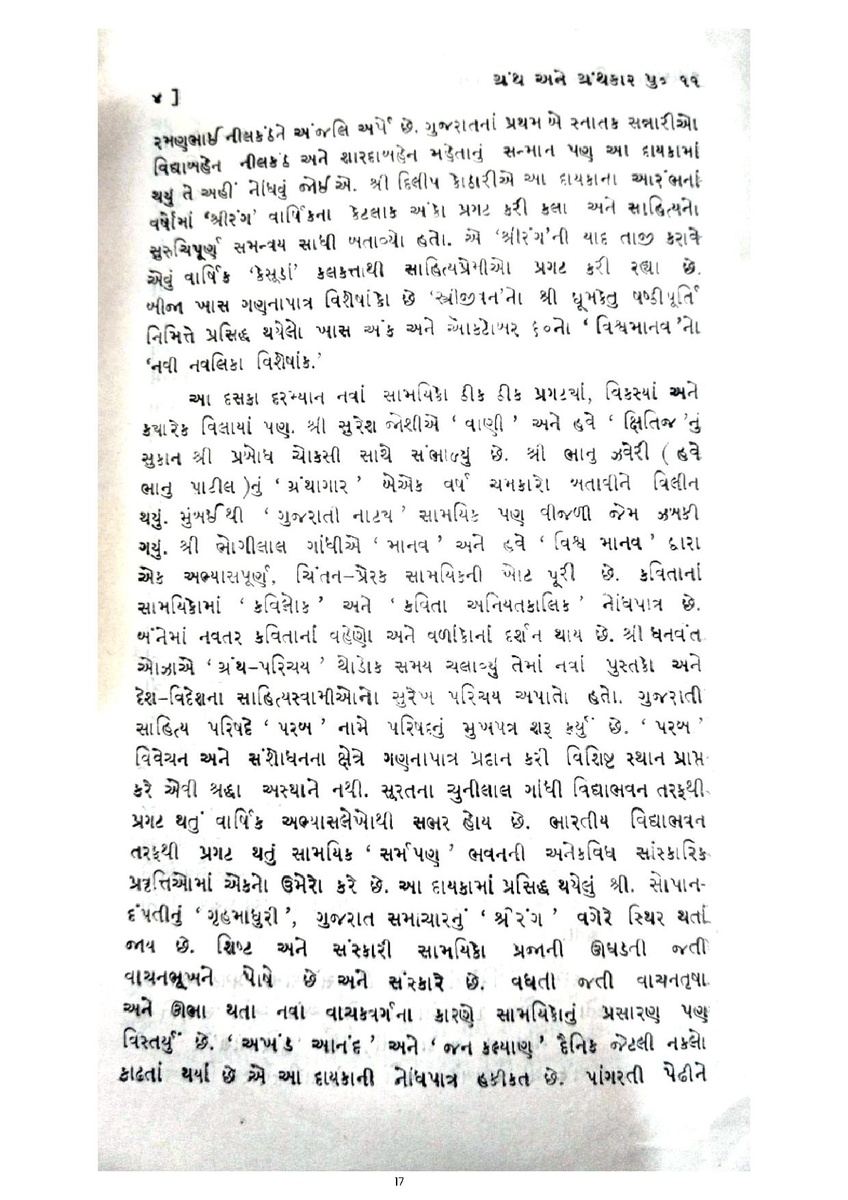 ગ્રંથ અને ગ્રંથકાર પુ૦ ૧૧
૪ ]
રમણભાઈ નીલકંઠને અંજલિ અર્પે છે. ગુજરાતનાં પ્રથમ બે સ્નાતક સન્નારીઓ
વિદ્યાબહેન નીલકંઠ અને શારદાબહેન મહેતાનું સન્માન પણ આ દાયકામાં
થયું તે અહીં નોંધવું જોઈએ. શ્રી દિલીપ કોઠારીએ આ દાયકાના આરંભનાં
વર્ષોમાં ‘શ્રીરંગ’ વાર્ષિકના કેટલાક અંકો પ્રગટ કરી કલા અને સાહિત્યનો
સુરુચિપૂર્ણ સમન્વય સાધી બતાવ્યો હતો. એ ‘શ્રીરંગ’ની યાદ તાજી કરાવે
એવું વાર્ષિક ‘કેસૂડાં’ કલકત્તાથી સાહિત્યપ્રેમીઓ પ્રગટ કરી રહ્યા છે.
બીજા ખાસ ગણનાપાત્ર વિશેષાંકો છે ‘સ્ત્રીજીવન’નો શ્રી ધૂમકેતુ ષષ્ઠીપૂર્તિ
નિમિત્તે પ્રસિદ્ધ થયેલો ખાસ અંક અને ઑક્ટોબર ૬૦નો ‘ વિશ્વમાનવ ’નો
‘નવી નવલિકા વિશેષાંક.’
આ દસકા દરમ્યાન નવાં સામયિકો ઠીક ઠીક પ્રગટ્યાં, વિકસ્યાં અને
ક્યારેક વિલાયાં પણ. શ્રી સુરેશ જોશીએ ‘ વાણી ’ અને હવે ‘ ક્ષિતિજ ’નું
સુકાન શ્રી પ્રબોધ ચોકસી સાથે સંભાળ્યું છે. શ્રી ભાનુ ઝવેરી ( હવે
ભાનુ પાટીલ )નું ‘ ગ્રંથાગાર ’ બેએક વર્ષ ચમકારો બતાવીને વિલીન
થયું. મુંબઈથી ‘ ગુજરાતી નાટ્ય ’ સામયિક પણ વીજળી જેમ ઝબકી
ગયું. શ્રી ભોગીલાલ ગાંધીએ ‘ માનવ ’ અને હવે ‘ વિશ્વ માનવ ’ દ્વારા
એક અભ્યાસપૂર્ણ, ચિંતન-પ્રેરક સામયિકની ખોટ પૂરી છે. કવિતાનાં
સામયિકોમાં ‘ કવિલોક ’ અને ‘ કવિતા અનિયતકાલિક ’ નોંધપાત્ર છે.
બંનેમાં નવતર કવિતાનાં વહેણો અને વળાંકોનાં દર્શન થાય છે. શ્રી ધનવંત
ઓઝાએ ‘ ગ્રંથ-પરિચય ’ થોડોક સમય ચલાવ્યું તેમાં નવાં પુસ્તકો અને
દેશ-વિદેશના સાહિત્યસ્વામીઓનો સુરેખ પરિચય અપાતો હતો. ગુજરાતી
સાહિત્ય પરિષદે ‘ પરબ ’ નામે પરિષદનું મુખપત્ર શરૂ કર્યું છે. ‘ પરબ ’
વિવેચન અને સંશોધનના ક્ષેત્રે ગણનાપાત્ર પ્રદાન કરી વિશિષ્ટ સ્થાન પ્રાપ્ત
કરે એવી શ્રદ્ધા અસ્થાને નથી. સૂરતના ચુનીલાલ ગાંધી વિદ્યાભવન તરફથી
પ્રગટ થતું વાર્ષિક અભ્યાસલેખોથી સભર હોય છે. ભારતીય વિદ્યાભવન
તરફથી પ્રગટ થતું સામયિક ‘ સર્મપણ ’ ભવનની અનેકવિધ સાંસ્કારિક
પ્રવૃત્તિઓમાં એકનો ઉમેરો કરે છે. આ દાયકામાં પ્રસિદ્ધ થયેલું શ્રી. સોપાન-
દંપતીનું ‘ ગૃહમાધુરી ’, ગુજરાત સમાચારનું ‘ શ્રીરંગ ’ વગેરે સ્થિર થતાં
જાય છે. શિષ્ટ અને સંસ્કારી સામયિકો પ્રજાની ઊઘડતી જતી
વાચનભૂખને પોષે છે અને સંસ્કારે છે. વધતી જતી વાચનતૃષા
અને ઊભા થતા નવા વાચકવર્ગના કારણે સામયિકોનું પ્રસારણ પણ
વિસ્તર્યું છે. ‘ અખંડ આનંદ ’ અને ‘ જન કલ્યાણ ’ દૈનિક જેટલી નકલો
કાઢતાં થયાં છે એ આ દાયકાની નોંધપાત્ર હકીકત છે. પાંગરતી પેઢીને
17